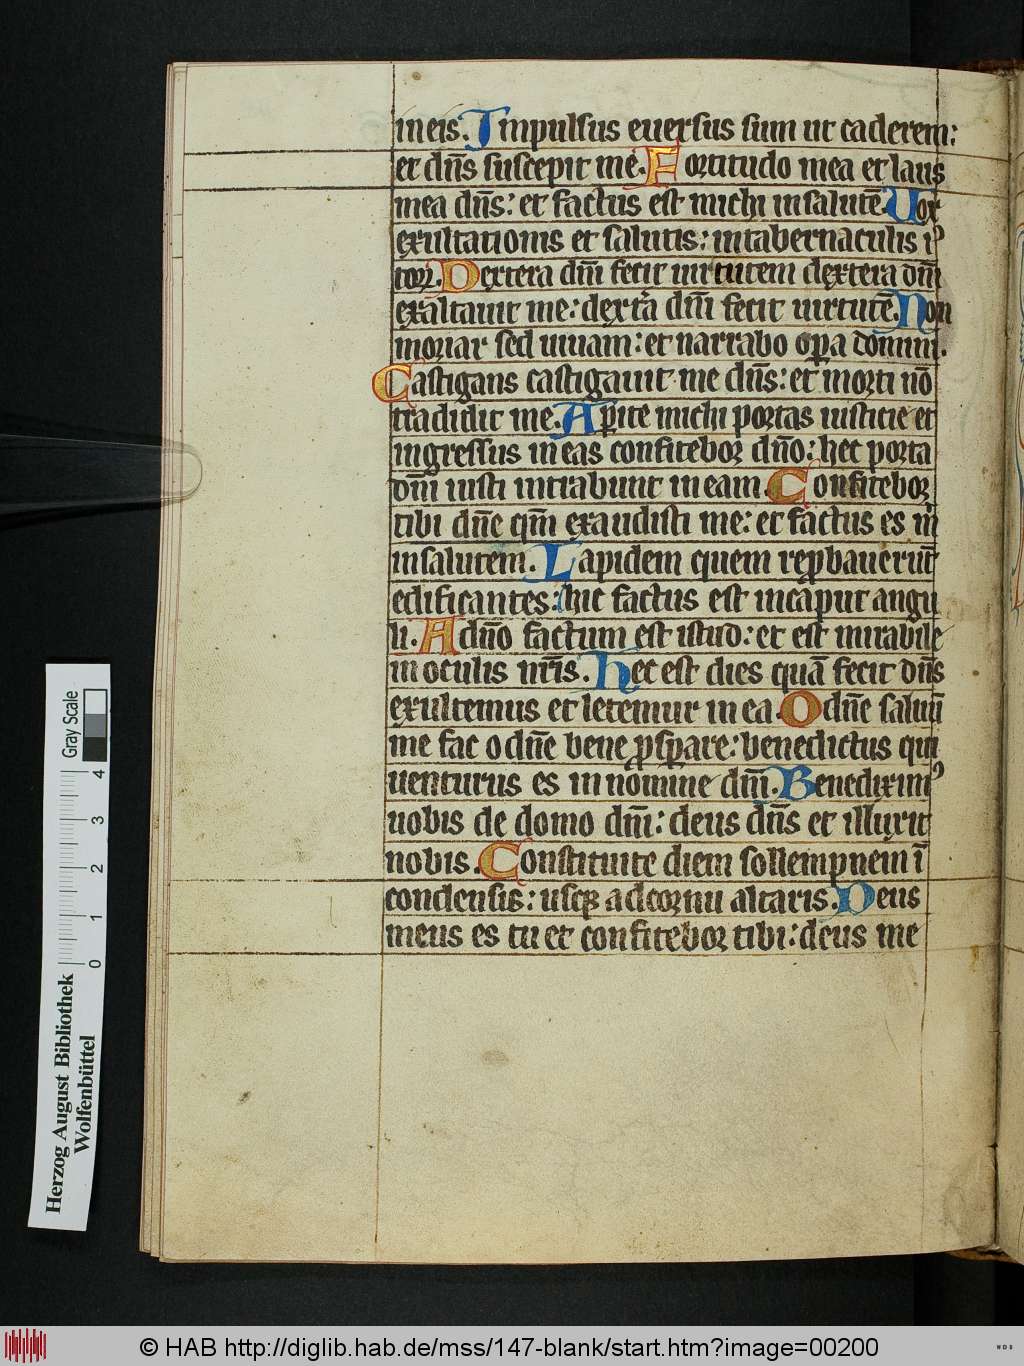 in eis. Impulsus euersus sum ut caderem:
et dn̄s suscepit me. Fortitudo mea et laus
mea dn̄s: et factus est michi insalutē. Uox
exultationis et salutis: intabernaculis iꝰ
toꝝ. Dextera dn̄i fecit uirtutem dextera dn̄i
exaltauit me: dextͣa dn̄i fecit uirtutē. Non
moriar sed uiuam: et narrabo oꝑa domini.
Castigans castigauit me dn̄s: et morti nō
tradidit me. Aꝑite michi portas iusticie et
ingressus in eas confitebor dn̄o: hec porta
dn̄i iusti intrabunt in eam. Confitebor
tibi dn̄e qm̄ exaudisti me: et factus es m̄
insalutem. Lapidem quem reꝓbauerūt
edificantes: hic factus est incaput angu
li. A dn̄o factum est istud: et est mirabile
in oculis nr̄is. Hec est dies quā fecit dn̄s
exultemus et letemur in ea. O dn̄e saluū
me fac o dn̄e bene ꝓsꝑare: benedictus qui
uenturus es in nomine dn̄i. Benediximꝰ
uobis de domo dn̄i: deus dn̄s et illuxit
nobis. Constituite diem sollempnem ī
condensis: usqꝫ adcornu altaris. Deus
meus es tu et confitebor tibi: deus me
Gray Scale
4 3 2 1 0
Herzog August Bibliothek
Wolfenbüttel
© HAB http://diglib.hab.de/mss/147-blank/start.htm?image=00200
WDB